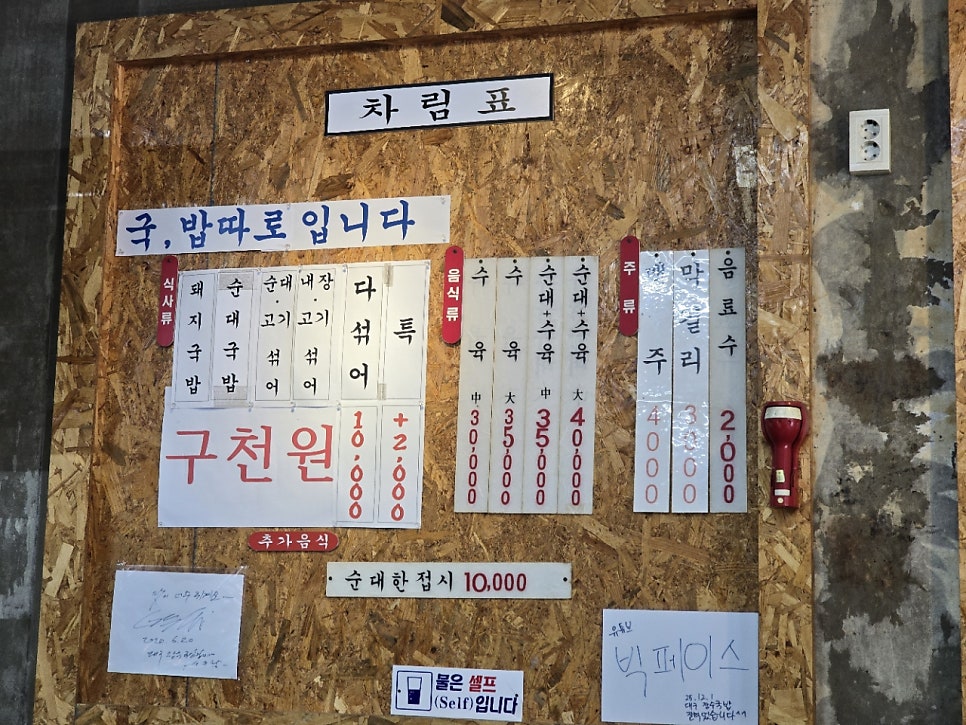 차림표
국,밥따로입니다
식사류
돼지국밥
순대국밥
순대·고기 섞어
내장·고기 섞어
구천원
다섞어 10,000
특 +2,000
음식류
수육 中 30,000
수육 大 35,000
순대+수육 中 35,000
순대+수육 大 40,000
주류
맥주 4000
막걸리 3000
음료수 2,000
추가음식
순대한접시 10,000
2020.6.20
물은 셀프
(Self)입니다
유튜브
빅페이스
25.12.1
대구